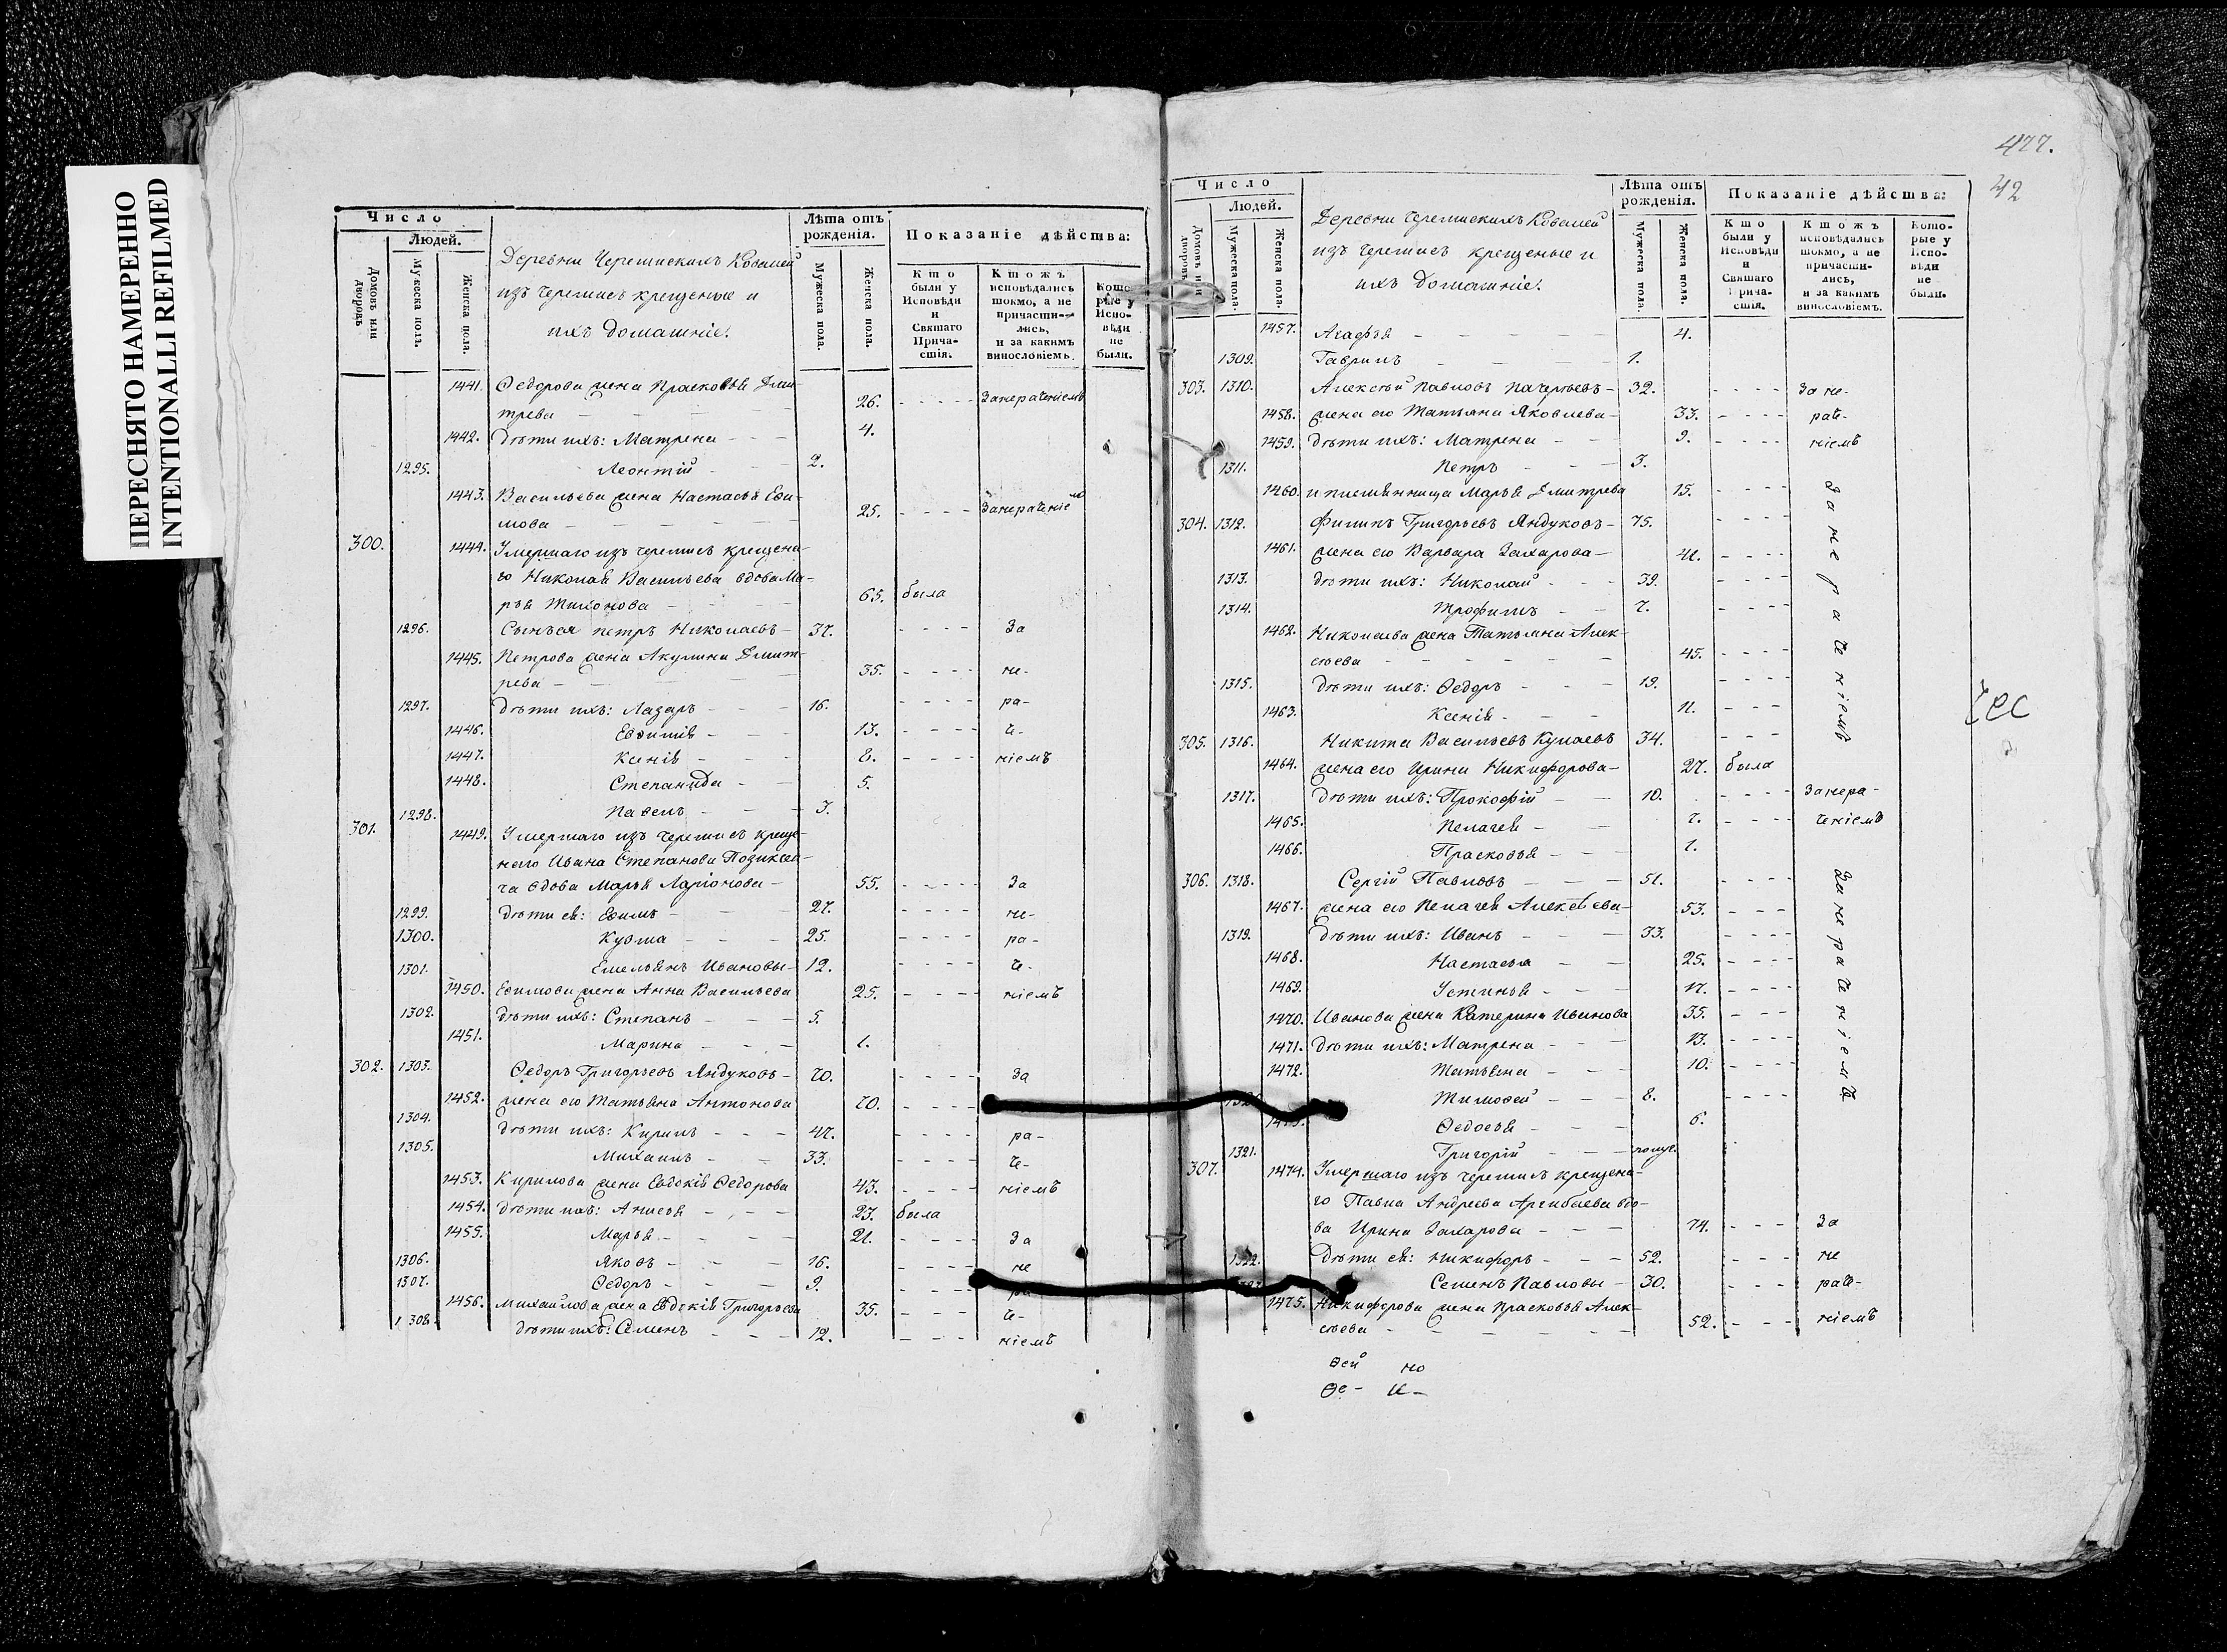 ПЕРЕСНЯТО НАМЕРЕННО
INTENTIONALLI REFILMED
Число
Людей.
Домовъ или дворовъ
Мужеска пола.
Женска пола.
Деревни Черемискихъ
изъ черемисъ крещеные и
ихъ домашніе.
Лѣта отъ рожденія.
Мужеска пола.
Женска пола.
Показаніе дѣйства:
Кто были у Исповѣди и Святаго Причастія.
Ктожъ исповѣдались токмо, а не причастились, и за какимъ винословіемъ.
Которые у Исповѣди не были.
1441. Ѳедорова жена Прасковья Дми-
трева 26. Занераченіемъ
1442. Дѣти ихъ: Матрена 4.
1295. Леонтій 2.
1443. Васильева жена Настасья Ефи-
мова 25. Занераченіем
300. 1444. Умершаго изъ черемисъ крещена-
го Николая Васильева вдова Ма-
рья Тихонова 65. была
1296. Сынъ ея Петръ Николаевъ 37. За
1445. Петрова жена Акулина Дмит-
рева 35. не-
1297. Дѣти ихъ: Лазарь 16. ра-
1446. Евфимія 13. че-
1447. Ксенія 8. ніемъ
1448. Степанида 5.
1298. Павелъ 3.
301. 1449. Умершаго изъ черемисъ креще-
наго Ивана Степанова
вдова Марья Ларіонова 55. За
1299. Дѣти ея: Ефимъ 27. не-
1300. Кузма 25. ра-
1301. Емельянъ Ивановы 12. че-
1450. Ефимова жена Анна Васильева 25. ніемъ
1302. Дѣти ихъ: Степанъ 5.
1451. Марина 1.
302. 1303. Ѳедоръ Григорьевъ Яндуковъ 70. За
1452. жена его Татьяна Антонова 70.
1304. Дѣти ихъ: Кирилъ 47. ра-
1305. Михаилъ 33. че-
1453. Кирилова жена Евдокія Ѳедорова 43. ніемъ
1454. Дѣти ихъ: Анисья 23. была
1455. Марья 21. За
1306. Яковъ 16. не
1307. Ѳедоръ 9. ра
1456. Михайлова жена Евдокія Григорьева 35. че-
1308. Дѣти ихъ: Семенъ 12. ніемъ
477.
42
Число
Людей.
Домовъ или дворовъ
Мужеска пола.
Женска пола.
Деревни Черемискихъ
изъ черемисъ крещеные и
ихъ домашніе.
Лѣта отъ рожденія.
Мужеска пола.
Женска пола.
Показаніе дѣйства:
Кто были у Исповѣди и Святаго Причастія.
Ктожъ исповѣдались токмо, а не причастились, и за какимъ винословіемъ.
Которые у Исповѣди не были.
1457. Агафья 4.
1309. Гаврилъ 1.
303. 1310. Алексѣй Павловъ 32. За не-
1458. жена его Татьяна Яковлева 33. раче-
1459. Дѣти ихъ: Матрена 9. ніемъ
1311. Петръ 3.
1460. и племянница Марья Дмитрева 15. Занераченіемъ
304. 1312. Филипъ Григорьевъ Яндуковъ 75.
1461. жена его Варвара Захарова
1313. Дѣти ихъ: Николай 39.
1314. Трофимъ 7.
1462. Николаева жена Татьяна Алек-
сѣева 45.
1315. Дѣти ихъ: Ѳедоръ 19.
1463. Ксенія 11.
305. 1316. Никита Васильевъ Кулаевъ 34.
1464. жена его Ирина Никифорова 27. была
1317. Дѣти ихъ: Прокофій 10. Занера-
1465. Пелагея 7. ченіемъ
1466. Прасковья 1.
306. 1318. Сергій Павловъ 51. Занераченіемъ
1467. жена его Пелагея Алексѣева 53.
1319. Дѣти ихъ: Иванъ 33.
1468. Настасья 25.
1469. Устинья 17.
1470. Иванова жена Катерина Иванова 35.
1471. Дѣти ихъ: Матрена 13.
1472. Татьяна 10.
Тимоѳей 8.
Ѳедосья 6.
1321. Григорій полуг.
307. 1474. Умершаго изъ черемисъ крещена-
го Павла Андреева вдо-
ва Ирина Захарова 74. За
1322. Дѣти ея: Никифоръ 52. не
Семенъ Павловы 30. раче-
1475. Никифорова жена Прасковья Алек-
сѣева 52. ніемъ